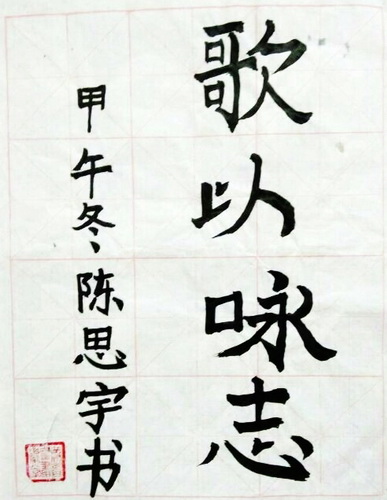 歌以咏志
甲午冬、陈思宇书